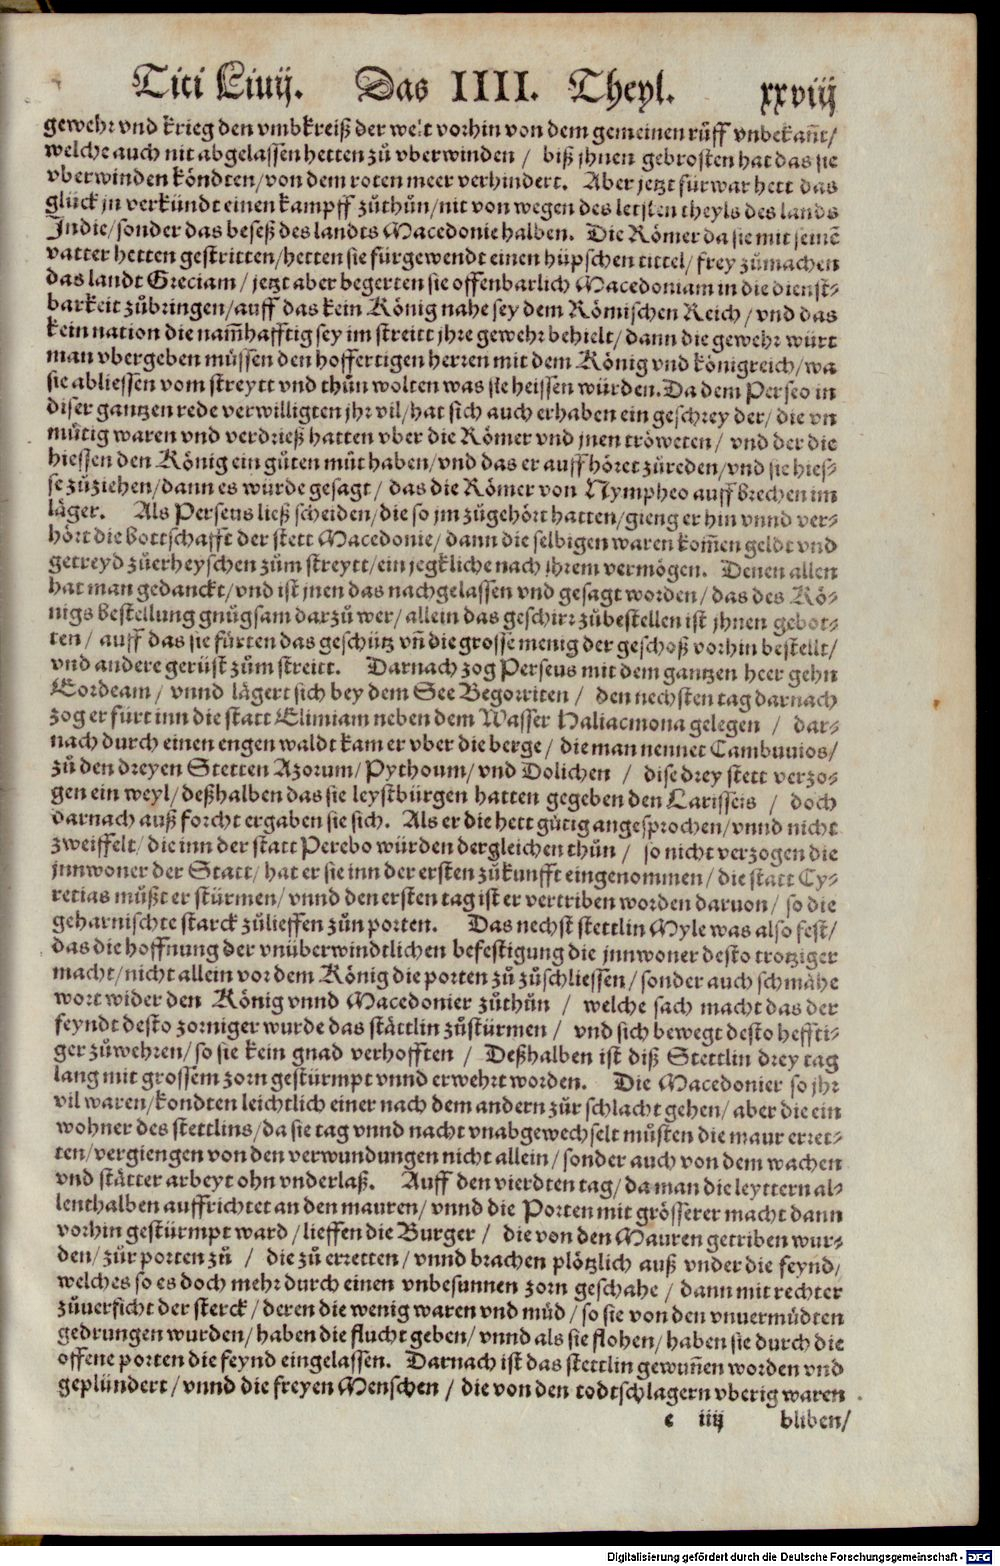 Titi Liuij. Das IIII. Theyl. xxviij
gewehr vnd krieg den vmbkreiß der welt vorhin von dem gemeinen růff vnbekañt/
welche auch nit abgelassen hetten zů vberwinden / biß jhnen gebrosten hat das sie
vberwinden köndten/von dem roten meer verhindert. Aber jetzt fürwar hett das
glück jn verkündt einen kampff zůthůn/nit von wegen des letsten theyls des lands
Indie/sonder das beseß des landts Macedonie halben. Die Römer da sie mit seinē
vatter hetten gestritten/hetten sie fürgewendt einen hüpschen tittel/frey zůmachen
das landt Greciam/jetzt aber begerten sie offenbarlich Macedoniam in die dienst-
barkeit zůbringen/auff das kein König nahe sey dem Römischen Reich/vnd das
kein nation die nam̃hafftig sey im streitt jhre gewehr behielt/dann die gewehr würt
man vbergeben müssen den hoffertigen herren mit dem König vnd königreich/wa
sie abliessen vom streytt vnd thůn wolten was sie heissen würden. Da dem Perseo in
diser gantzen rede verwilligten jhr vil/hat sich auch erhaben ein geschrey der/die vn
můtig waren vnd verdrieß hatten vber die Römer vnd jnen tröweten/ vnd der die
hiessen den König ein gůten můt haben/vnd das er auff höret zůreden/vnd sie hies-
se zůziehen/dann es würde gesagt/ das die Römer von Nympheo auff brechen im
läger. Als Perseus ließ scheiden/die so jm zůgehört hatten/gieng er hin vnnd ver-
hört die bottschafft der stett Macedonie/dann die selbigen waren kom̃en geldt vnd
getreyd zůerheyschen zům streytt/ein jegkliche nach jhrem vermögen. Denen allen
hat man gedanckt/vnd ist jnen das nachgelassen vnd gesagt worden/das des Kö-
nigs bestellung gnůgsam darzů wer/allein das geschirr zůbestellen ist jhnen gebot-
ten/ auff das sie fürten das geschütz vñ die grosse menig der geschoß vorhin bestellt/
vnd andere gerüst zům streitt. Darnach zog Perseus mit dem gantzen heer gehn
Eordeam/ vnnd lägert sich bey dem See Begorriten/ den nechsten tag darnach
zog er fürt inn die statt Elimiam neben dem Wasser Haliacmona gelegen / dar-
nach durch einen engen waldt kam er vber die berge/die man nennet Cambuuios/
zů den dreyen Stetten Azorum/Pythoum/vnd Dolichen / dise drey stett verzo-
gen ein weyl/deßhalben das sie leystbürgen hatten gegeben den Larisseis / doch
darnach auß forcht ergaben sie sich. Als er die hett gütig angesprochen/vnnd nicht
zweiffelt/die inn der statt Perebo würden dergleichen thůn / so nicht verzogen die
jnnwoner der Statt/hat er sie inn der ersten zůkunfft eingenommen/die statt Cy-
retias můßt er stürmen/vnnd den ersten tag ist er vertriben worden daruon/so die
geharnischte starck zůlieffen zůn porten. Das nechst stettlin Myle was also fest/
das die hoffnung der vnüberwindtlichen befestigung die jnnwoner desto trotziger
macht/nicht allein vor dem König die porten zů zůschliessen/sonder auch schmähe
wort wider den König vnnd Macedonier zůthůn / welche sach macht das der
feyndt desto zorniger wurde das stättlin zůstürmen / vnd sich bewegt desto heffti-
ger zůwehren/so sie kein gnad verhofften / Deßhalben ist diß Stettlin drey tag
lang mit grossem zorn gestürmpt vnnd erwehrt worden. Die Macedonier so jhr
vil waren/kondten leichtlich einer nach dem andern zůr schlacht gehen/aber die ein
wohner des stettlins/da sie tag vnnd nacht vnabgewechselt můsten die maur erret-
ten/vergiengen von den verwundungen nicht allein/sonder auch von dem wachen
vnd stätter arbeyt ohn vnderlaß. Auff den vierdten tag/da man die leyttern al-
lenthalben auffrichtet an den mauren/vnnd die Porten mit grösserer macht dann
vorhin gestürmpt ward/lieffen die Burger / die von den Mauren getriben wur-
den/zůr porten zů / die zů erretten/vnnd brachen plötzlich auß vnder die feynd/
welches so es doch mehr durch einen vnbesunnen zorn geschahe/dann mit rechter
zůuersicht der sterck/deren die wenig waren vnd můd/so sie von den vnuermüdten
gedrungen wurden/haben die flucht geben/vnnd als sie flohen/haben sie durch die
offene porten die feynd eingelassen. Darnach ist das stettlin gewuñen worden vnd
geplündert/vnnd die freyen Menschen/die von den todtschlagern vberig waren
e iiij bliben/
Digitalisierung gefördert durch die Deutsche Forschungsgemeinschaft - DFG